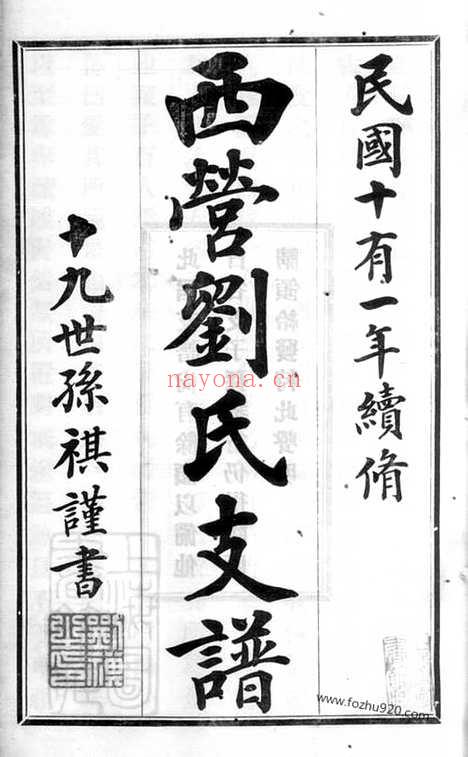 民國十有一年續脩
西營劉氏支譜
十九世孫祺謹書
nayona.cn
www.fozhu920.com